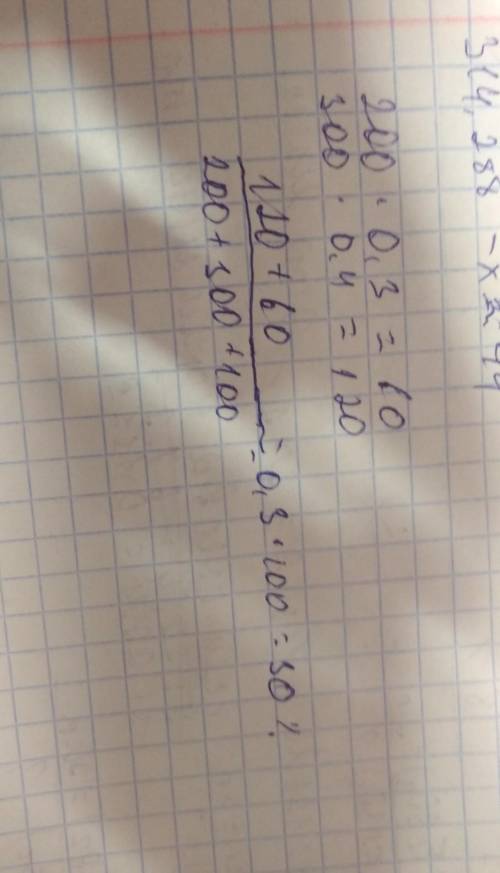 314,288 - x =
200 · 0,3 = 60
300 · 0,4 = 120
120 + 60
200 + 300 + 100
= 0,3 · 100 = 30%